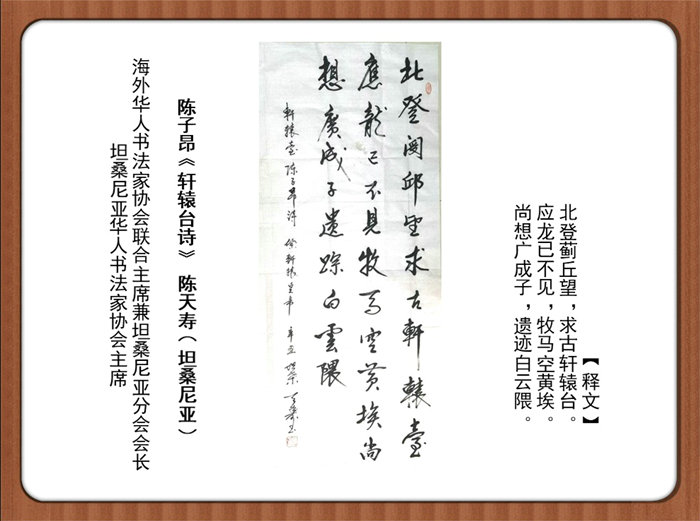 【释文】
北登蓟丘望，求古轩辕台。
应龙已不见，牧马空黄埃。
尚想广成子，遗迹白云隈。
北登阓邱望求古軒轅臺
應龍已不見牧馬空黄埃尚
想廣成子遗踪白雲隈
軒轅臺 陈子昂诗
陈子昂《轩辕台诗》 陈天寿（坦桑尼亚）
海外华人书法家协会联合主席兼坦桑尼亚分会会长
坦桑尼亚华人书法家协会主席